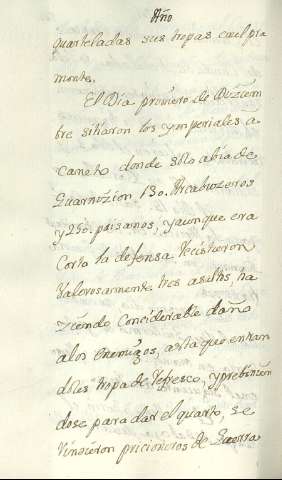 Año
quarteladas sus tropas en el pia
monte,
El Dia primero de Diziem
bre sitiaron los ymperiales a
Caneto donde solo abia de
Guarnizion 130. Arcabuzeros
y 250. paisanos, y aunque era
Corta la defensa Recistieron
Valerosamente tres asaltos, ha
ziendo Conciderable daño
a los enemigos, asta que entran
doles tropa de Refresco, y prebinien
dose para dar el quarto, se
Rindieron pricioneros de Guerra